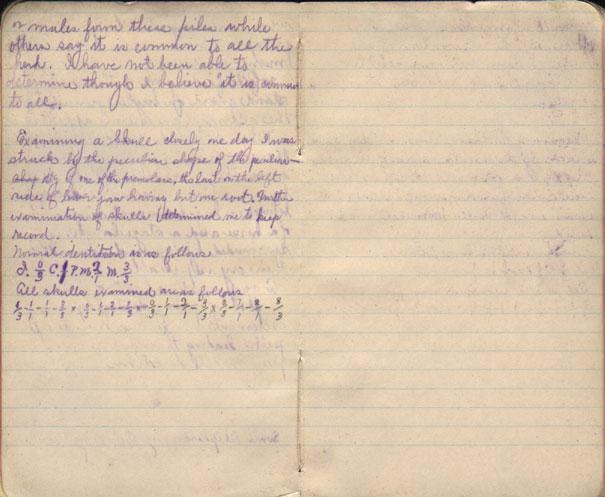 or males form these piles while
others say it is common to all the
herd. I have not been able to
determine though I believe it is common
to all.
Examining a skull closely one day I was
struck by the peculiar shape of the peculiar
shape of one of the premolars, the last on the left
side of lower jaw having but one root. Further
examination of skulls determined me to keep
record.
Normal dentition is as follows
I. 0/3 C. 1/1 P.M. 2/1 M. 3/3
All skulls examined are as follows